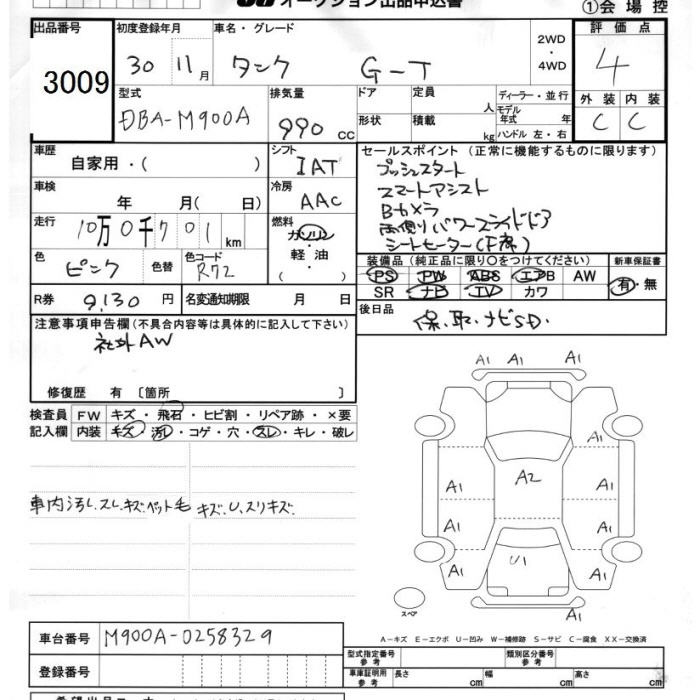 オークション出品申込書
①会場控
出品番号 初度登録年月 車名・グレード 2WD・4WD 評価点
3009 30 11月 タンク G-T 4
型式 排気量 ドア 定員 人 ディーラー・並行 外装 内装
DBA-M900A 990 cc 形状 積載 kg モデル年式 年 ハンドル 左・右 C C
車歴 シフト セールスポイント (正常に機能するものに限ります)
自家用・( ) IAT プッシュスタート
車検 冷房 スマートアシスト
年 月( 日) AAC Bカメラ
走行 燃料 両側パワースライドドア
10万0千701km ガソリン・軽油・( ) シートヒーター(F席)
色 色替 色コード 装備品 (純正品に限り○をつけてください) 新車保証書
ピンク R72 PS PW ABS エアB AW 有・無
SR ナビ TV カワ
R券 9,130円 名変通知期限 月 日 後日品
保.取.ナビSD.
注意事項申告欄(不具合内容等は具体的に記入して下さい)
社外AW
修復歴 有 〔箇所 〕
検査員 FW キズ・飛石・ヒビ割・リペア跡・×要
記入欄 内装 キズ・汚レ・コゲ・穴・スレ・キレ・破レ
A1 A1 A1
A1
A1 A2 A1
A1 A1
A1 U1 A1
A1
車内汚レ.スレ.キズ.ペット毛 キズ.U.スリキズ.
スペア
A-キズ E-エクボ U-凹み W-補修跡 S-サビ C-腐食 XX-交換済
車台番号 M900A-0258329
型式指定番号 参考 類別区分番号 参考
登録番号 車庫証明用 参考 長さ cm 幅 cm 高さ cm